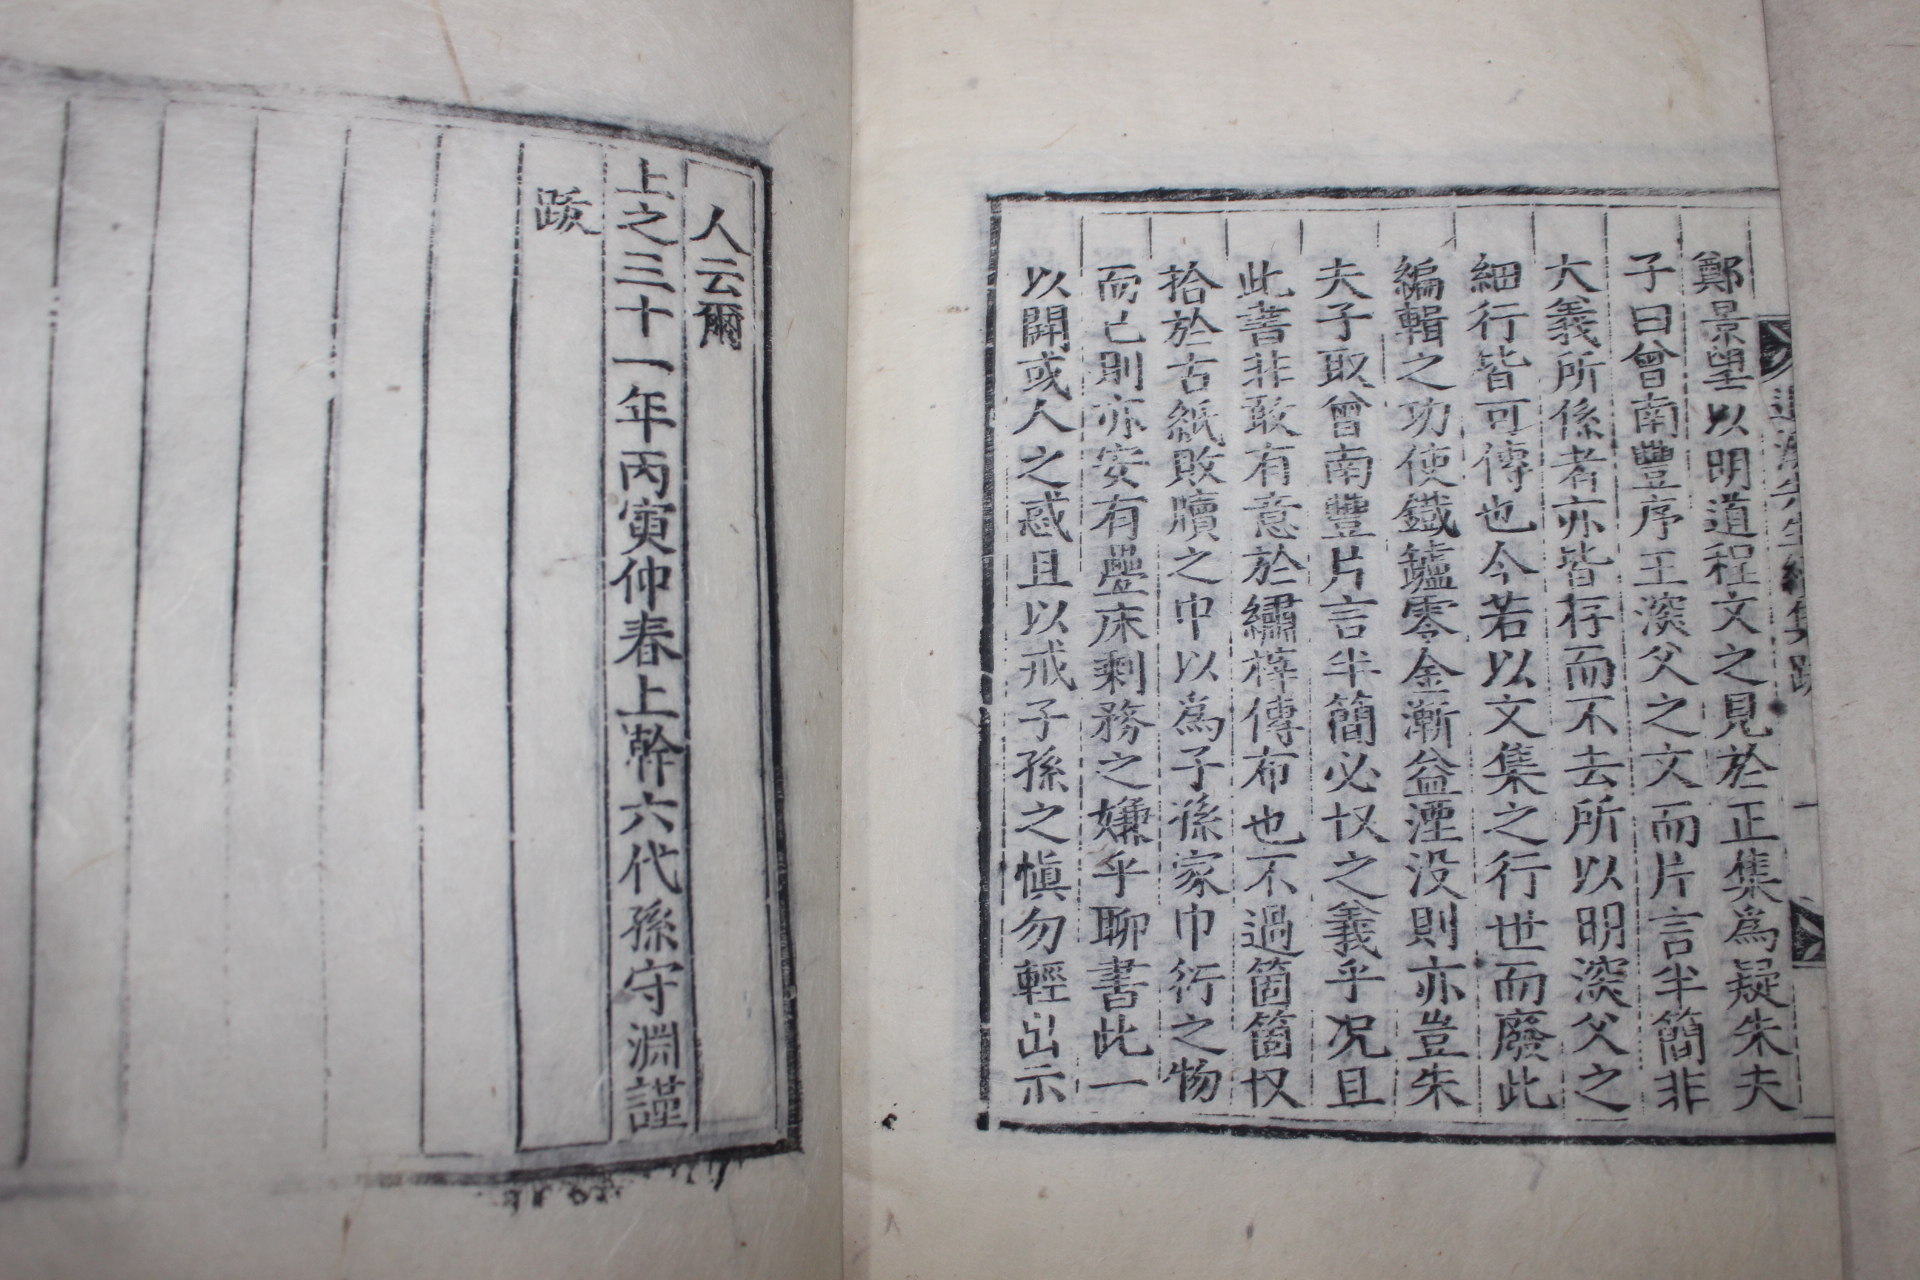 退溪先生續集跋
一
鄭景望以明道程文之見於正集爲疑朱夫
子曰曾南豐序王深父之文而片言半簡非
大義所係者亦皆存而不去所以明深父之
細行皆可傳也今若以文集之行世而廢此
編輯之功使鐵鑪零金漸益湮没則亦豈朱
夫子取曾南豐片言半簡必㕛之義乎况且
此書非敢有意於繡梓傳布也不過箇箇㕛
拾於古紙敗牘之中以爲子孫家巾衍之物
而已則亦安有疊床剩務之嫌乎聊書此一
以開或人之惑且以戒子孫之愼勿輕出示
人云爾
上之三十一年丙寅仲春上幹六代孫守淵謹
跋